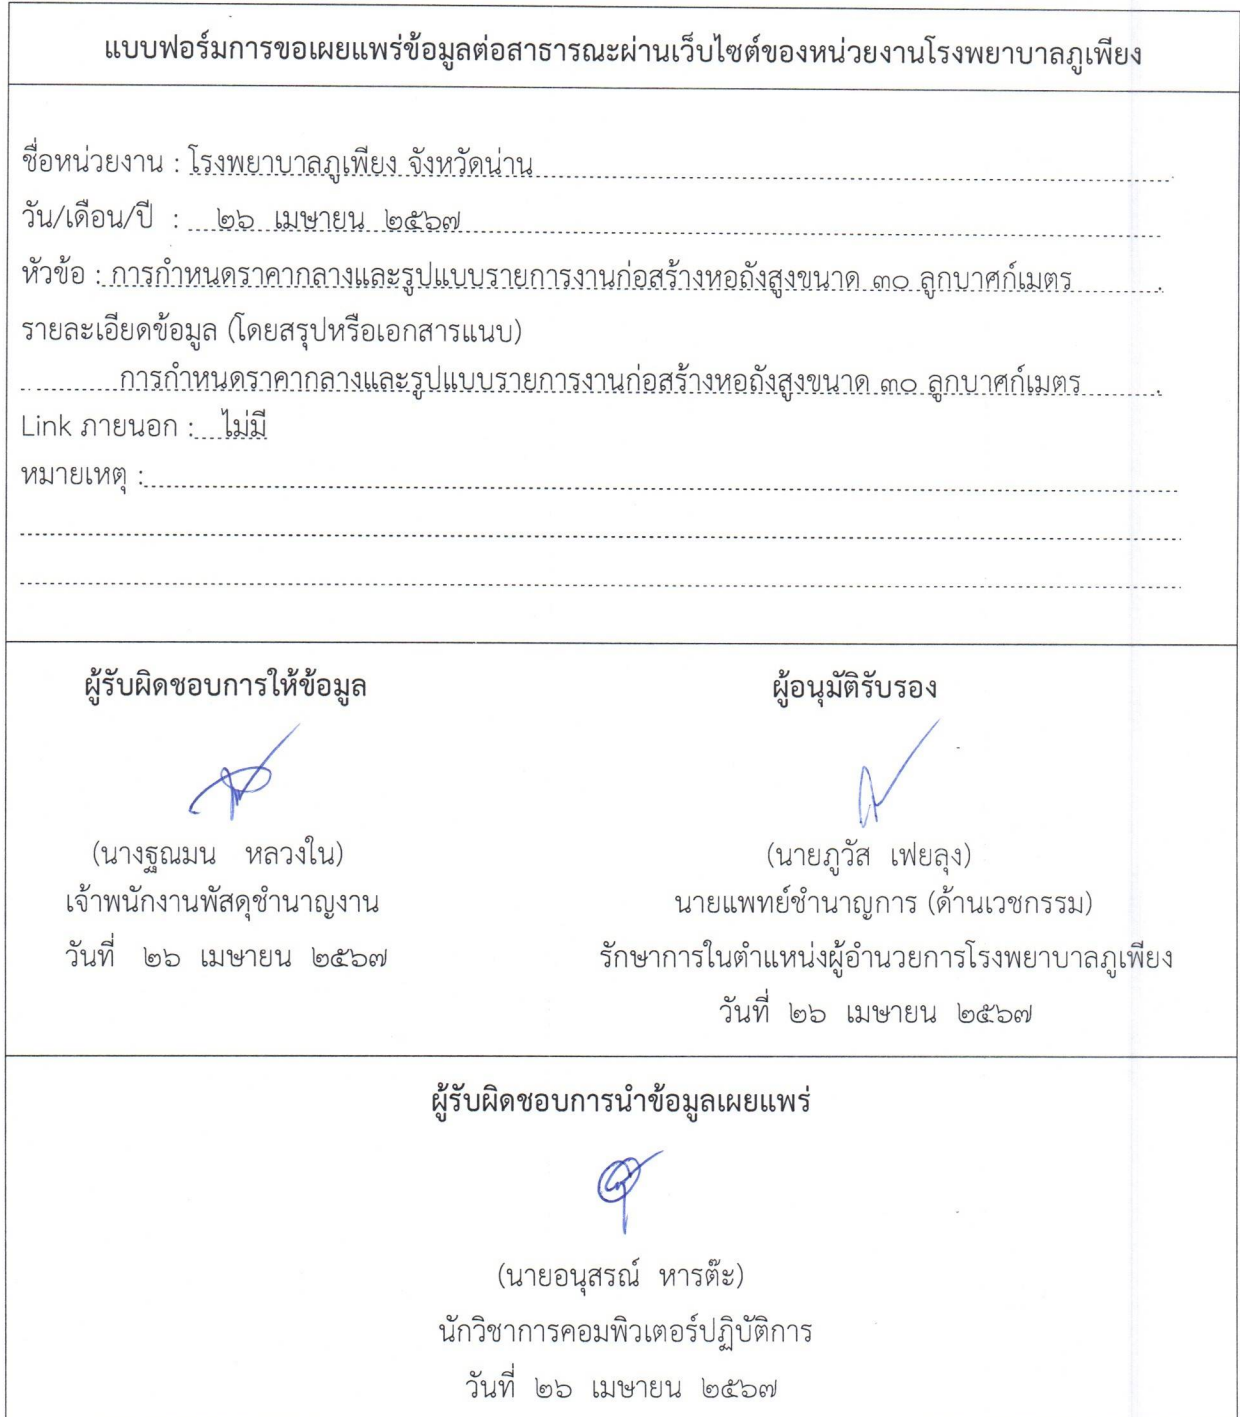 แบบฟอร์มการขอเผยแพร่ข้อมูลต่อสาธารณะผ่านเว็บไซต์ของหน่วยงานโรงพยาบาลภูเพียง
ชื่อหน่วยงาน : โรงพยาบาลภูเพียง จังหวัดน่าน
วัน/เดือน/ปี : ๒๖ เมษายน ๒๕๖๗
หัวข้อ : การกำหนดราคากลางและรูปแบบรายการงานก่อสร้างหอถังสูงขนาด ๓๐ ลูกบาศก์เมตร
รายละเอียดข้อมูล (โดยสรุปหรือเอกสารแนบ)
การกำหนดราคากลางและรูปแบบรายการงานก่อสร้างหอถังสูงขนาด ๓๐ ลูกบาศก์เมตร
Link ภายนอก : ไม่มี
หมายเหตุ :
ผู้รับผิดชอบการให้ข้อมูล
(นางฐณมน หลวงใน)
เจ้าพนักงานพัสดุชำนาญงาน
วันที่ ๒๖ เมษายน ๒๕๖๗
ผู้อนุมัติรับรอง
(นายภูวัส เฟยลุง)
นายแพทย์ชำนาญการ (ด้านเวชกรรม)
รักษาการในตำแหน่งผู้อำนวยการโรงพยาบาลภูเพียง
วันที่ ๒๖ เมษายน ๒๕๖๗
ผู้รับผิดชอบการนำข้อมูลเผยแพร่
(นายอนุสรณ์ หารต๊ะ)
นักวิชาการคอมพิวเตอร์ปฏิบัติการ
วันที่ ๒๖ เมษายน ๒๕๖๗